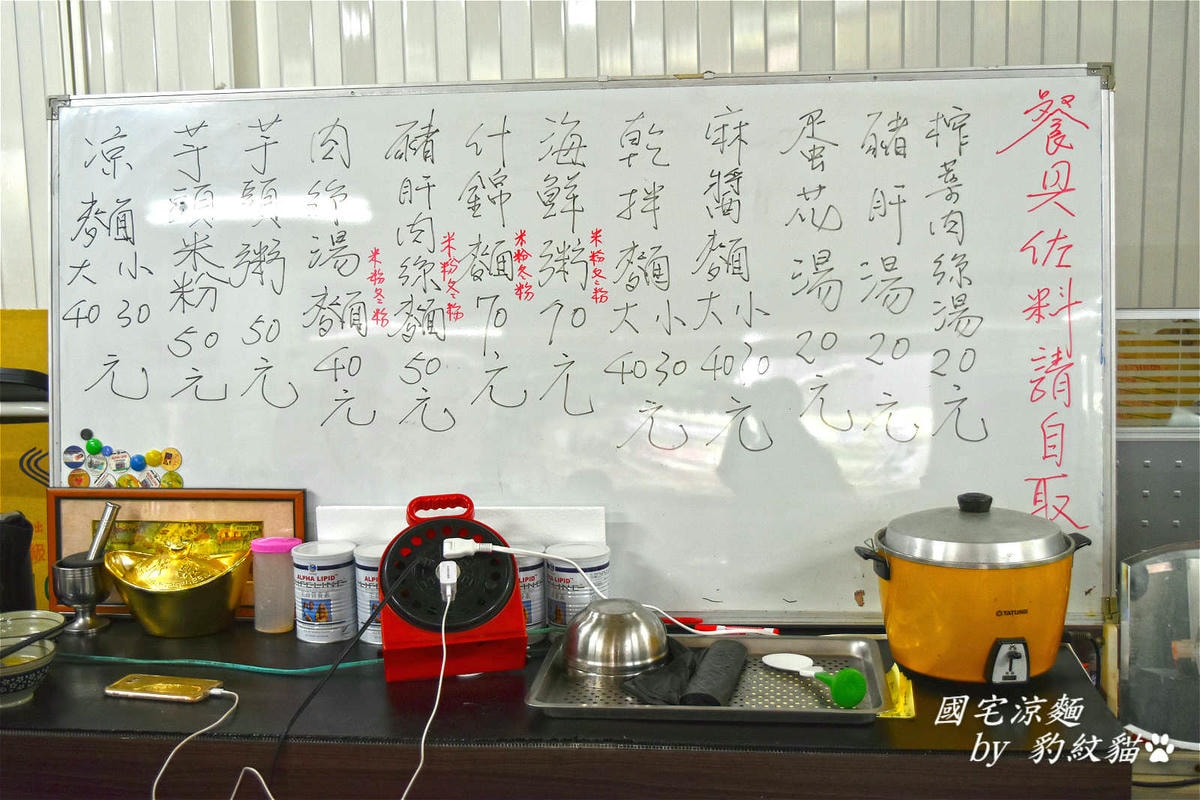 餐具佐料請自取
榨菜肉絲湯20元
豬肝湯20元
蛋花湯20元
麻醬麵大40小30元
乾拌麵大40小30元
米粉冬粉
海鮮粥70元
米粉冬粉
什錦麵70元
米粉冬粉
豬肝肉絲麵50元
米粉冬粉
肉絲湯麵40元
芋頭粥50元
芋頭米粉50元
凉麵大40小30元
ALPHA LIPID
LIFELINE
TATUNG
國宅涼麵
by 豹紋貓